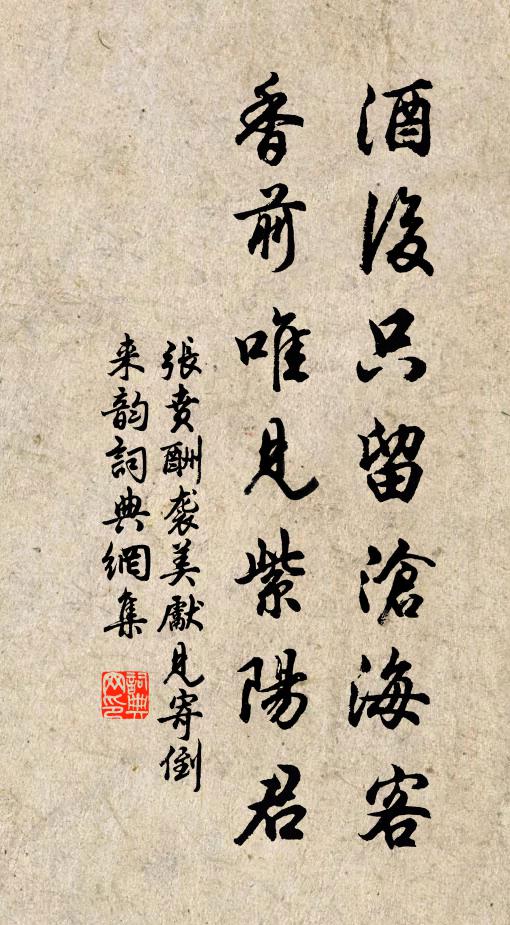 酒後只留滄海客
香前唯見紫陽君
張賁酬袭美獻見寄倒
来韵詞典網集
詞典网印